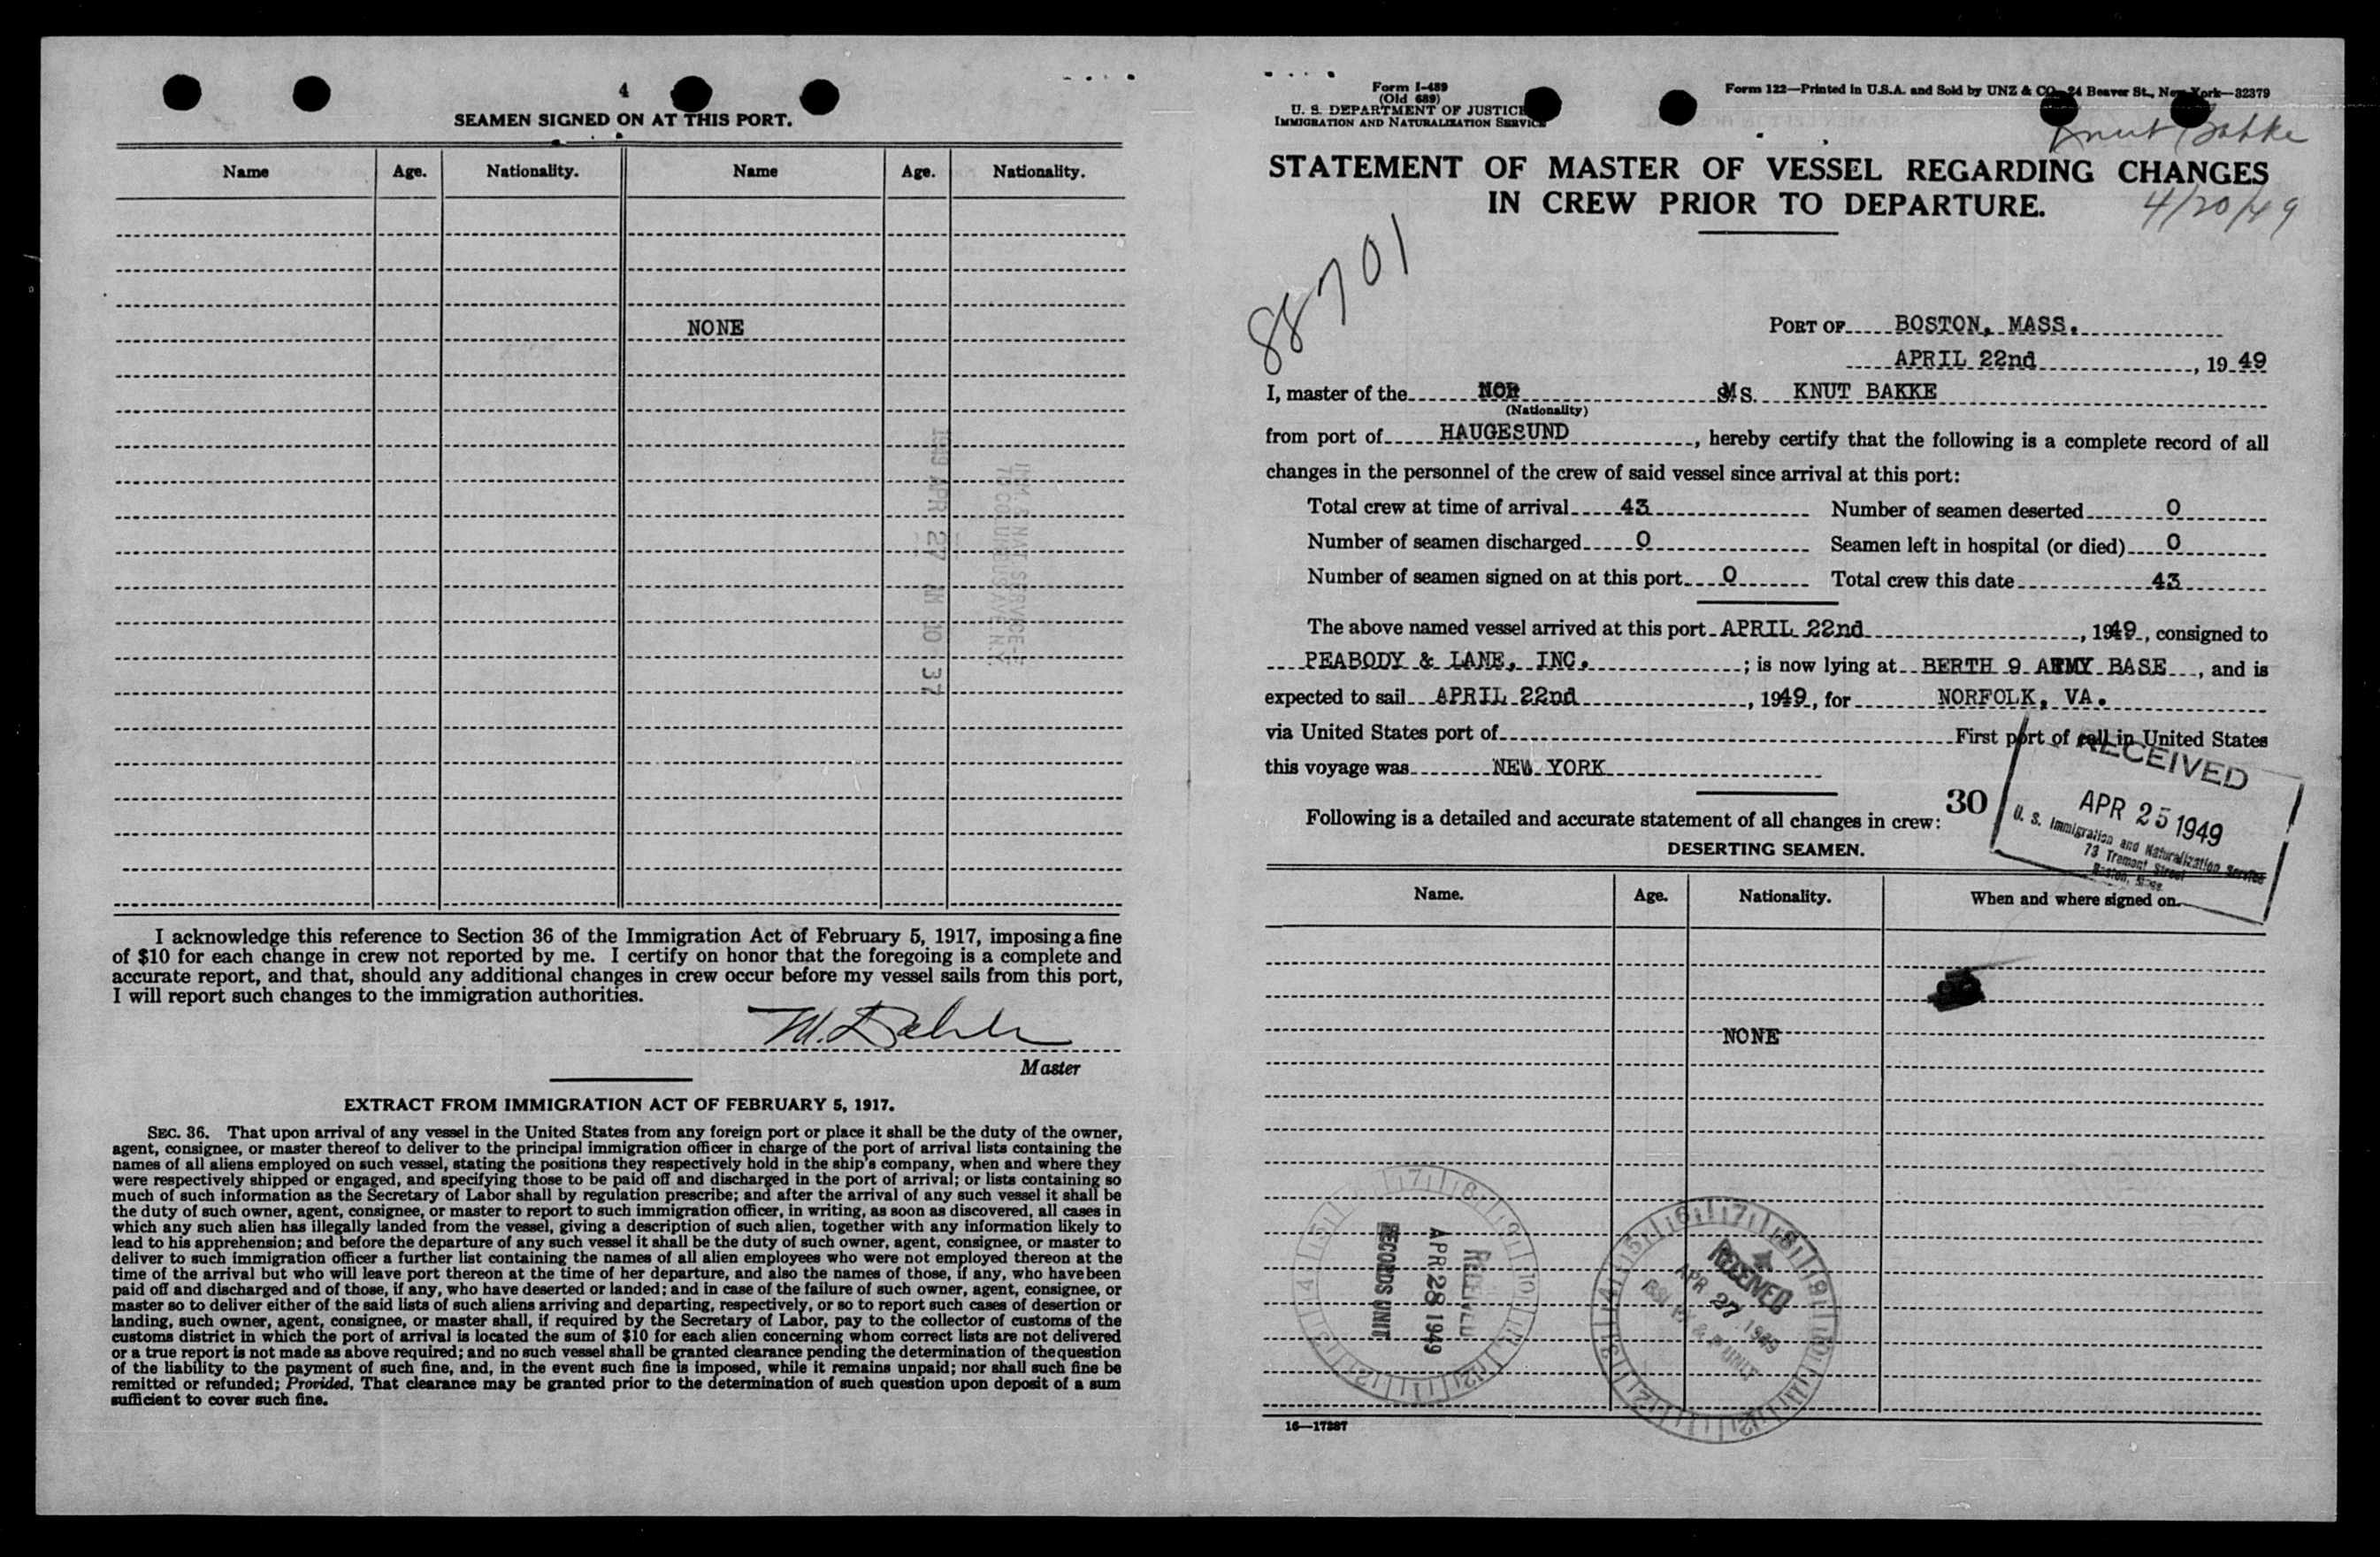 4
SEAMEN SIGNED ON AT THIS PORT.
Name Age. Nationality. Name Age. Nationality.
NONE
1949 APR 27 AM 10 37
IMM. & NAT. SERVICE
70 COLUMBUS AVE N.Y.
I acknowledge this reference to Section 36 of the Immigration Act of February 5, 1917, imposing a fine
of $10 for each change in crew not reported by me. I certify on honor that the foregoing is a complete and
accurate report, and that, should any additional changes in crew occur before my vessel sails from this port,
I will report such changes to the immigration authorities.
Master
EXTRACT FROM IMMIGRATION ACT OF FEBRUARY 5, 1917.
SEC. 36. That upon arrival of any vessel in the United States from any foreign port or place it shall be the duty of the owner,
agent, consignee, or master thereof to deliver to the principal immigration officer in charge of the port of arrival lists containing the
names of all aliens employed on such vessel, stating the positions they respectively hold in the ship's company, when and where they
were respectively shipped or engaged, and specifying those to be paid off and discharged in the port of arrival; or lists containing so
much of such information as the Secretary of Labor shall by regulation prescribe; and after the arrival of any such vessel it shall be
the duty of such owner, agent, consignee, or master to report to such immigration officer, in writing, as soon as discovered, all cases in
which any such alien has illegally landed from the vessel, giving a description of such alien, together with any information likely to
lead to his apprehension; and before the departure of any such vessel it shall be the duty of such owner, agent, consignee, or master to
deliver to such immigration officer a further list containing the names of all alien employees who were not employed thereon at the
time of the arrival but who will leave port thereon at the time of her departure, and also the names of those, if any, who have been
paid off and discharged and of those, if any, who have deserted or landed; and in case of the failure of such owner, agent, consignee, or
master so to deliver either of the said lists of such aliens arriving and departing, respectively, or so to report such cases of desertion or
landing, such owner, agent, consignee, or master shall, if required by the Secretary of Labor, pay to the collector of customs of the
customs district in which the port of arrival is located the sum of $10 for each alien concerning whom correct lists are not delivered
or a true report is not made as above required; and no such vessel shall be granted clearance pending the determination of the question
of the liability to the payment of such fine, and, in the event such fine is imposed, while it remains unpaid; nor shall such fine be
remitted or refunded; Provided, That clearance may be granted prior to the determination of such question upon deposit of a sum
sufficient to cover such fine.
Form I-489
(Old 689)
U. S. DEPARTMENT OF JUSTICE
IMMIGRATION AND NATURALIZATION SERVICE
Form 122—Printed in U.S.A. and Sold by UNZ & CO., 24 Beaver St., New York—32379
Knut Bakke
STATEMENT OF MASTER OF VESSEL REGARDING CHANGES
IN CREW PRIOR TO DEPARTURE.
4/20/49
88701
PORT OF BOSTON, MASS.
APRIL 22nd, 1949
I, master of the NOR MS. KNUT BAKKE
(Nationality)
from port of HAUGESUND, hereby certify that the following is a complete record of all
changes in the personnel of the crew of said vessel since arrival at this port:
Total crew at time of arrival 43 Number of seamen deserted 0
Number of seamen discharged 0 Seamen left in hospital (or died) 0
Number of seamen signed on at this port 0 Total crew this date 43
The above named vessel arrived at this port APRIL 22nd, 1949, consigned to
PEABODY & LANE, INC.; is now lying at BERTH 9 ARMY BASE, and is
expected to sail APRIL 22nd, 1949, for NORFOLK, VA.
via United States port of First port of call in United States
this voyage was NEW YORK
RECEIVED
APR 25 1949
U. S. Immigration and Naturalization Service
73 Tremont Street
Boston, Mass.
30
Following is a detailed and accurate statement of all changes in crew:
DESERTING SEAMEN.
Name. Age. Nationality. When and where signed on.
NONE
RECEIVED
APR 28 1949
RECORDS UNIT
RECEIVED
APR 27 1949
16—17287